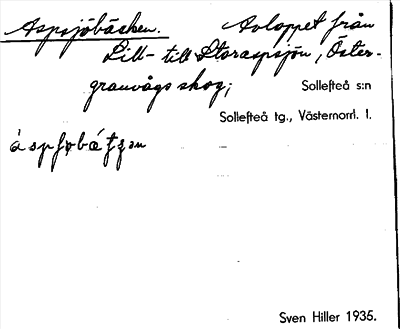 Aspsjöbäcken. Avloppet från
Lill- till Storaspsjön, Öster-
granvågs skog;
Sollefteå s:n
Sollefteå tg., Västernorrl. l.
Sven Hiller 1935.